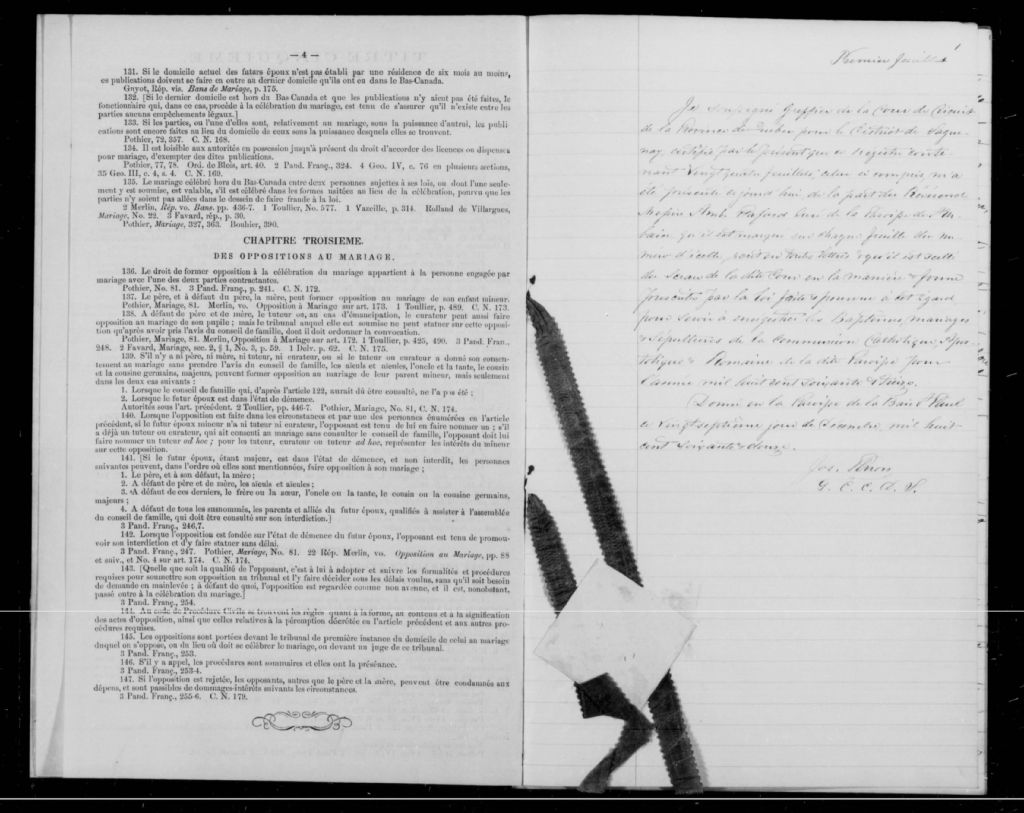 — 4 —
131. Si le domicile actuel des futurs époux n'est pas établi par une résidence de six mois au moins,
es publications doivent se faire en outre au dernier domicile qu'ils ont eu dans le Bas-Canada.
Guyot, Rép. vis. Bans de Mariage, p. 175.
132. [Si le dernier domicile est hors du Bas-Canada et que les publications n'y aient pas été faites, le
fonctionnaire qui, dans ce cas, procède à la célébration du mariage, est tenu de s'assurer qu'il n'existe entre les
parties aucuns empêchements légaux.]
133. Si les parties, ou l'une d'elles, sont, relativement au mariage, sous la puissance d'autrui, les publi-
cations sont encore faites au lieu du domicile de ceux sous la puissance desquels elles se trouvent.
Pothier, 72, 357. C. N. 168.
134. Il est loisible aux autorités en possession jusqu'à présent du droit d'accorder des licences ou dispenses
pour mariage, d'exempter des dites publications.
Pothier, 77, 78. Ord. de Blois, art. 40. 2 Pand. Franç., 324. 4 Geo. IV, c. 76 en plusieurs sections,
35 Geo. III, c. 4, s. 4. C. N. 169.
135. Le mariage célébré hors du Bas-Canada entre deux personnes sujettes à ses lois, ou dont l'une seule-
ment y est soumise, est valable, s'il est célébré dans les formes usitées au lieu de la célébration, pourvu que les
parties n'y soient pas allées dans le dessein de faire fraude à la loi.
2 Merlin, Rép. vo. Bans, pp. 436-7. 1 Toullier, No. 577. 1 Vazeille, p. 314. Rolland de Villargues,
Mariage, No. 22. 3 Favard, rép., p. 30.
Pothier, Mariage, 327, 363. Bouhier, 390.
CHAPITRE TROISIEME.
DES OPPOSITIONS AU MARIAGE.
136. Le droit de former opposition à la célébration du mariage appartient à la personne engagée par
mariage avec l'une des deux parties contractantes.
Pothier, No. 81. 3 Pand. Franç, p. 241. C. N. 172.
137. Le père, et à défaut du père, la mère, peut former opposition au mariage de son enfant mineur.
Pothier, Mariage, 81. Merlin, vo. Opposition à Mariage sur art. 173. 1 Toullier, p. 489. C. N. 173.
138. A défaut de père et de mère, le tuteur ou, au cas d'émancipation, le curateur peut aussi faire
opposition au mariage de son pupile; mais le tribunal auquel elle est soumise ne peut statuer sur cette opposi-
tion qu'après avoir pris l'avis du conseil de famille, dont il doit ordonner la convocation.
Pothier, Mariage, 81. Merlin, Opposition à Mariage sur art. 172. 1 Toullier, p. 425, 490. 3 Pand. Fran.,
248. 2 Favard, Mariage, sec. 2, § 1, No. 3, p. 59. 1 Delv. p. 62. C. N. 175.
139. S'il n'y a ni père, ni mère, ni tuteur, ni curateur, ou si le tuteur ou curateur a donné son consen-
tement au mariage sans prendre l'avis du conseil de famille, les aïeuls et aïeules, l'oncle et la tante, le cousin
et la cousine germains, majeurs, peuvent former opposition au mariage de leur parent mineur, mais seulement
dans les deux cas suivants :
1. Lorsque le conseil de famille qui, d'après l'article 122, aurait dû être consulté, ne l'a pas été ;
2. Lorsque le futur époux est dans l'état de démence.
Autorités sous l'art. précédent. 2 Toullier, pp. 446-7. Pothier, Mariage, No. 81, C. N. 174.
140. Lorsque l'opposition est faite dans les circonstances et par une des personnes énumérées en l'article
précédent, si le futur époux mineur n'a ni tuteur ni curateur, l'opposant est tenu de lui en faire nommer un ; s'il
a déjà un tuteur ou curateur, qui ait consenti au mariage sans consulter le conseil de famille, l'opposant doit lui
faire nommer un tuteur ad hoc ; pour les tuteur, curateur ou tuteur ad hoc, représenter les intérêts du mineur
sur cette opposition.
141. [Si le futur époux, étant majeur, est dans l'état de démence, et non interdit, les personnes
suivantes peuvent, dans l'ordre où elles sont mentionnées, faire opposition à son mariage ;
1. Le père, et à son défaut, la mère ;
2. A défaut de père et de mère, les aïeuls et aïeules ;
3. A défaut de ces derniers, le frère ou la sœur, l'oncle ou la tante, le cousin ou la cousine germains,
majeurs ;
4. A défaut de tous les susnommés, les parents et alliés du futur époux, qualifiés à assister à l'assemblée
du conseil de famille, qui doit être consulté sur son interdiction.]
3 Pand. Franç., 246,7.
142. Lorsque l'opposition est fondée sur l'état de démence du futur époux, l'opposant est tenu de promou-
voir son interdiction et d'y faire statuer sans délai.
3 Pand. Franç., 247. Pothier, Mariage, No. 81. 22 Rép. Merlin, vo. Opposition au Mariage, pp. 88
et suiv., et No. 4 sur art. 174. C. N. 174.
143. [Quelle que soit la qualité de l'opposant, c'est à lui à adopter et suivre les formalités et procédures
requises pour soumettre son opposition au tribunal et l'y faire décider sous les délais voulus, sans qu'il soit besoin
de demande en mainlevée ; à défaut de quoi, l'opposition est regardée comme non avenue, et il est, nonobstant,
passé outre à la célébration du mariage.]
3 Pand. Franç., 254.
144. Au code de Procédure Civile se trouvent les règles quant à la forme, au contenu et à la signification
des actes d'opposition, ainsi que celles relatives à la péremption décrétée en l'article précédent et aux autres pro-
cédures requises.
145. Les oppositions sont portées devant le tribunal de première instance du domicile de celui au mariage
duquel on s'oppose, ou du lieu où doit se célébrer le mariage, ou devant un juge de ce tribunal.
3 Pand. Franç., 253.
146. S'il y a appel, les procédures sont sommaires et elles ont la préséance.
3 Pand. Franç., 253-4.
147. Si l'opposition est rejetée, les opposants, autres que le père et la mère, peuvent être condamnés aux
dépens, et sont passibles de dommages-intérêts suivants les circonstances.
3 Pand. Franç., 255-6. C. N. 179.
1
feuillet
Je Soussigné Greffier de la Cour de Circuit
de la Province de Québec pour le District de Sague-
nay, certifie par le présent que ce registre conte-
nant Vingt quatre feuillets, celui ci compris, m'a
été présenté ce jourd'hui de la part du Révérend
Messire Amb. Fafard Curé de la Paroisse de St Ur-
bain, qu'il est marqué sur chaque feuille du nu-
méro d'icelle, écrit en toutes lettres & qu'il est scellé
du Sceau de la dite Cour en la manière & forme
prescrites par la loi faite & pourvue à cet égard
pour servir à enregistrer les Baptêmes, mariages
& Sépultures de la Communion Catholique, Apos-
tolique & Romaine de la dite Paroisse pour
l'année mil huit cent soixante &
Donné en la Paroisse de la Baie St Paul
ce Vingt septième jour de Décembre mil huit
cent soixante &
Jos. Perron
G. C. C. D. S.